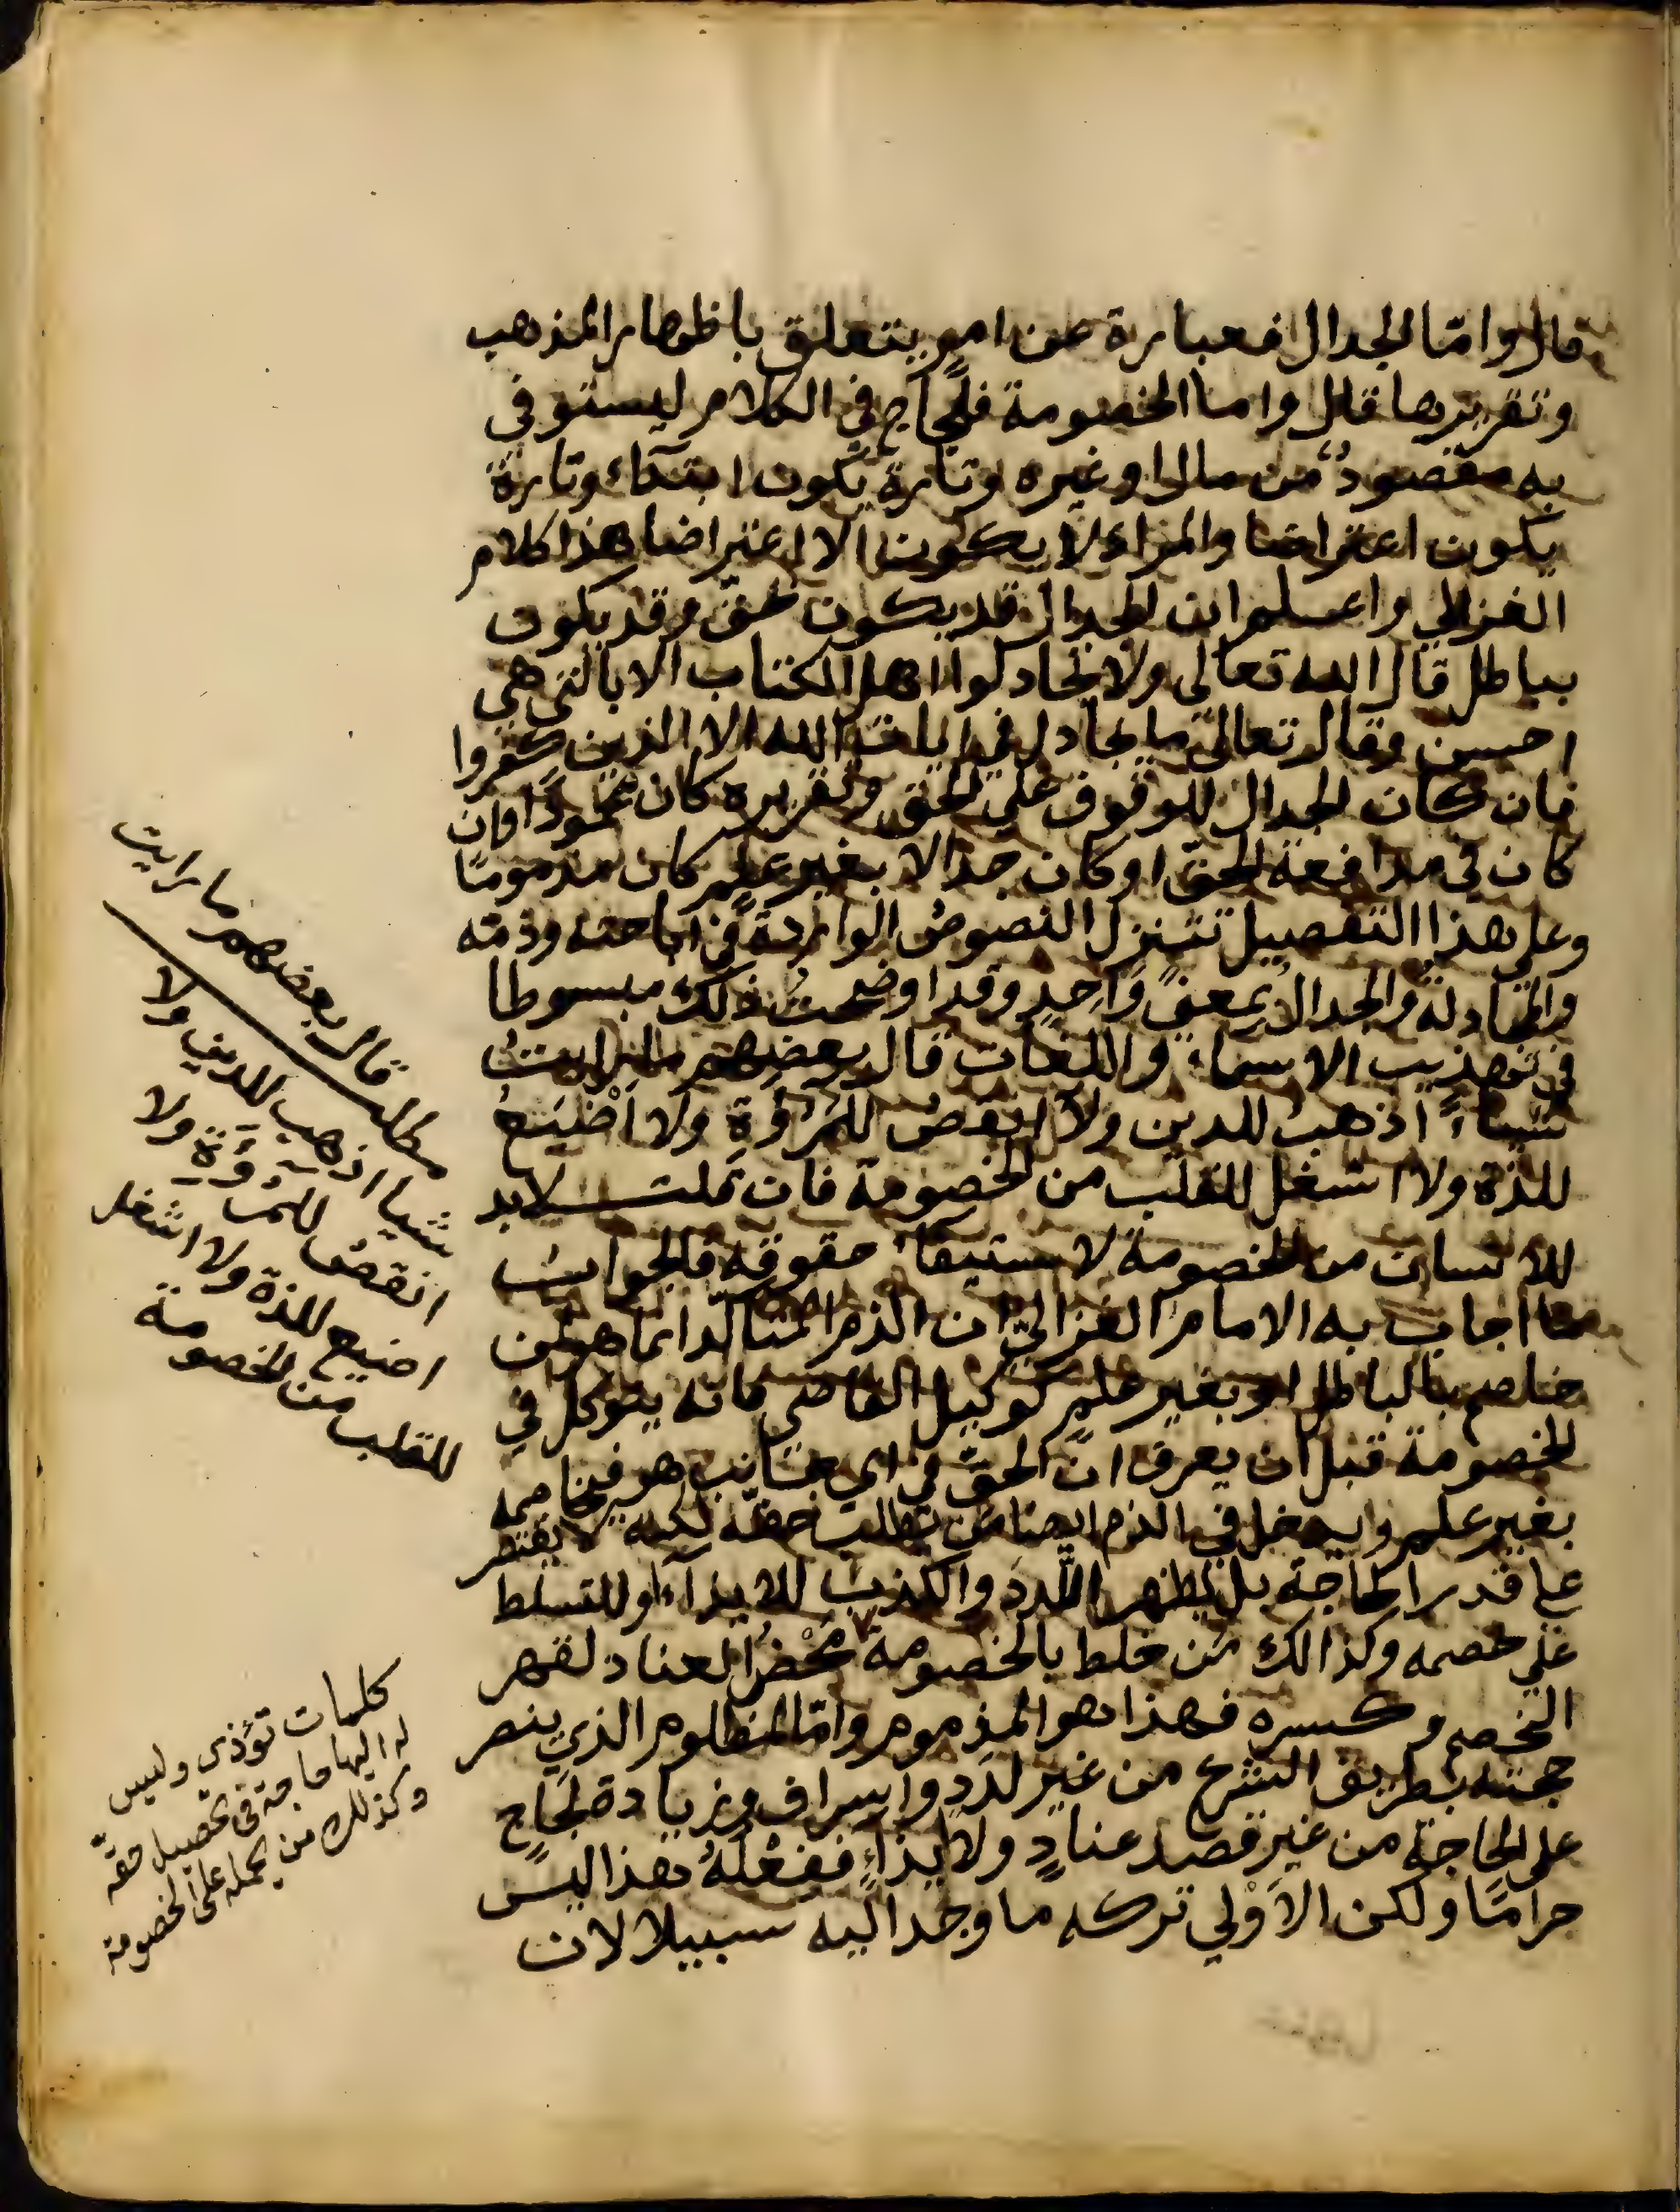 قال واما الجدال فعبارة عن امر يتعلق باظهار المذهب
وتقريرها قال واما الخصومة فلجاج في الكلام ليستوفى
به مقصود من مال او غيره وتارة يكون ابتداء وتارة
يكون اعتراضا والمراء لا يكون الا اعتراضا هذا كلام
الغزالي واعلم ان الجدال قد يكون بحق وقد يكون
بباطل قال الله تعالى ولا تجادلوا اهل الكتاب الا بالتي هي
احسن وقال تعالى ما يجادل في ايات الله الا الذين كفروا
فان كان الجدال للوقوف على الحق وتقريره كان محمودًا وان
كان في مدافعة الحقّ او كان جدالا بغير علم كان مذمومًا
وعلى هذا التفصيل تتنزل النصوصُ الواردة في اباحته وذمّه
والمجادلةُ والجدالُ بمعنًى وَاحِدٍ وقد اوضحتُ ذلك مبسوطا
في تهذيب الاسماء واللغات قال بعضهم ما رايتُ
شيئاً اذهبَ للدين ولا انقصُ للمُرُوَّةِ ولا اَضْيَعُ
للذة ولا اشغل للقلب من الخصومة فان قلت لابد
للانسان من الخصومة لاستيفاء حقوقه فالجوابُ
ما اجاب به الامام الغزاليّ ان الذم المتاكّد انما هو لمن
خاصم بالباطل او بغير علمٍ كوكيل القاضي فانه يتوكل في
الخصومة قبل ان يعرف انّ الحقّ في اي جانب هو فيخاصم
بغير علم ويدخل في الذم ايضا من يطلب حقّه لكنه لا يقتصر
على قدر الحاجة بل يظهر اللَّددَ والكذبَ للايذآء او للتسلط
على خصمه وكذالك مَن خلط بالخصومة مَحْضُ العناد لقهر
الخصم وكسره فهذا هو المذموم وامّا المظلوم الذي ينصر
حجته بطريق الشرع من غير لدَدٍ واسراف وزيادة لجَاجٍ
على الحاجة من غير قصد عنادٍ ولا ايذاءٍ ففعْلُهُ هذا ليس
حرامًا ولكن الاَوْلى تركه ما وجد اليه سبيلا لان
مطلب قال بعضهم ما رايت
شيا اذهب للدين ولا
انقص للمُرُوَّة ولا
اضيع للذة ولا اشغل
للقلب من الخصومة
كلمات تؤذى وليس
له اليها حاجة في تحصيل حقّه
وكذلك من يحمله على الخصومة